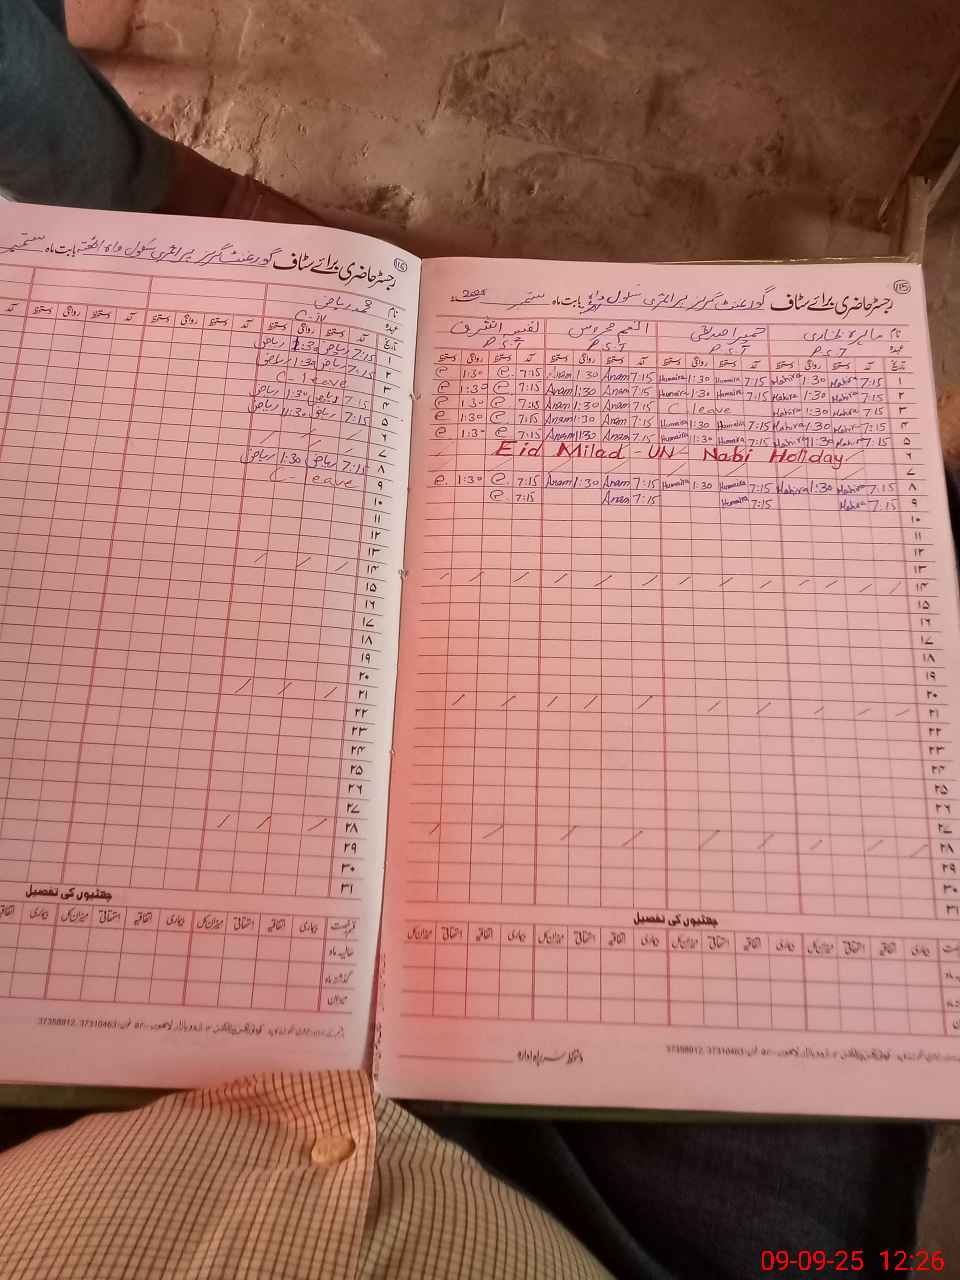 ۱۱۵
رجسٹر حاضری برائے سٹاف گورنمنٹ گرلز پرائمری سکول واہ بابت ماہ ستمبر 2025
نام ماہرہ بخاری حمیرا صدیقی
عہدہ P.S.T P.S.T P.S.T P.S.T
تاریخ آمد دستخط روانگی دستخط آمد دستخط روانگی دستخط آمد دستخط روانگی دستخط آمد دستخط روانگی دستخط
۱ 7:15 Mahira 1:30 Mahira 7:15 Humaira 1:30 Humaira 7:15 Anam 1:30 Anam 7:15 1:30
۲ 7:15 Mahira 1:30 Mahira 7:15 Humaira 1:30 Humaira 7:15 Anam 1:30 Anam 7:15 1:30
۳ 7:15 Mahira 1:30 Mahira C leave 7:15 Anam 1:30 Anam 7:15 1:30
۴ 7:15 Mahira 1:30 Mahira 7:15 Humaira 1:30 Humaira 7:15 Anam 1:30 Anam 7:15 1:30
۵ 7:15 Mahira 1:30 Mahira 7:15 Humaira 1:30 Humaira 7:15 Anam 1:30 Anam 7:15 1:30
۶ Eid Milad-UN-Nabi Holiday
۷
۸ 7:15 Mahira 1:30 Mahira 7:15 Humaira 1:30 Humaira 7:15 Anam 1:30 Anam 7:15 1:30
۹ 7:15 Mahira 7:15 Humaira 7:15 Anam 7:15
۱۰
۱۱
۱۲
۱۳
۱۴
۱۵
۱۶
۱۷
۱۸
۱۹
۲۰
۲۱
۲۲
۲۳
۲۴
۲۵
۲۶
۲۷
۲۸
۲۹
۳۰
۳۱
چھٹیوں کی تفصیل
بیماری اتفاقیہ استحقاقی میزان کل بیماری اتفاقیہ استحقاقی میزان کل بیماری اتفاقیہ استحقاقی میزان کل بیماری اتفاقیہ استحقاقی میزان کل
دستخط سربراہ ادارہ
37310463, 37358012
۱۱۶
رجسٹر حاضری برائے سٹاف گورنمنٹ گرلز پرائمری سکول واہ بابت ماہ ستمبر
نام محمد ریاض
عہدہ C-IV
تاریخ آمد دستخط روانگی دستخط آمد دستخط روانگی دستخط آمد
۱ 7:15 ریاض 1:30 ریاض
۲ 7:15 ریاض 1:30 ریاض
۳ C-leave
۴ 7:15 ریاض 1:30 ریاض
۵ 7:15 ریاض 1:30 ریاض
۶
۷
۸ 7:15 ریاض 1:30 ریاض
۹ C-leave
۱۰
۱۱
۱۲
۱۳
۱۴
۱۵
۱۶
۱۷
۱۸
۱۹
۲۰
۲۱
۲۲
۲۳
۲۴
۲۵
۲۶
۲۷
۲۸
۲۹
۳۰
۳۱
چھٹیوں کی تفصیل
بیماری اتفاقیہ استحقاقی میزان کل بیماری اتفاقیہ استحقاقی میزان کل بیماری اتفاقیہ
حالیہ ماہ
گذشتہ ماہ
میزان
37310463, 37358012
09-09-25 12:26